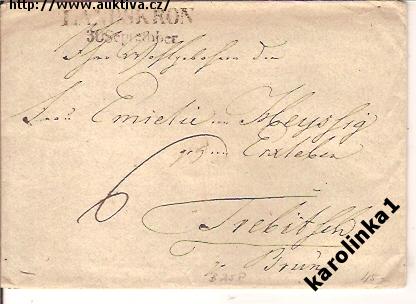 http://www.auktiva.cz/
LANDSKRON
30 September.
Ihro Wohlgebohren der
Frau Emielie von Meyssig
geb von Erxleben
6
Trebitsch
Brünn
karolinka1